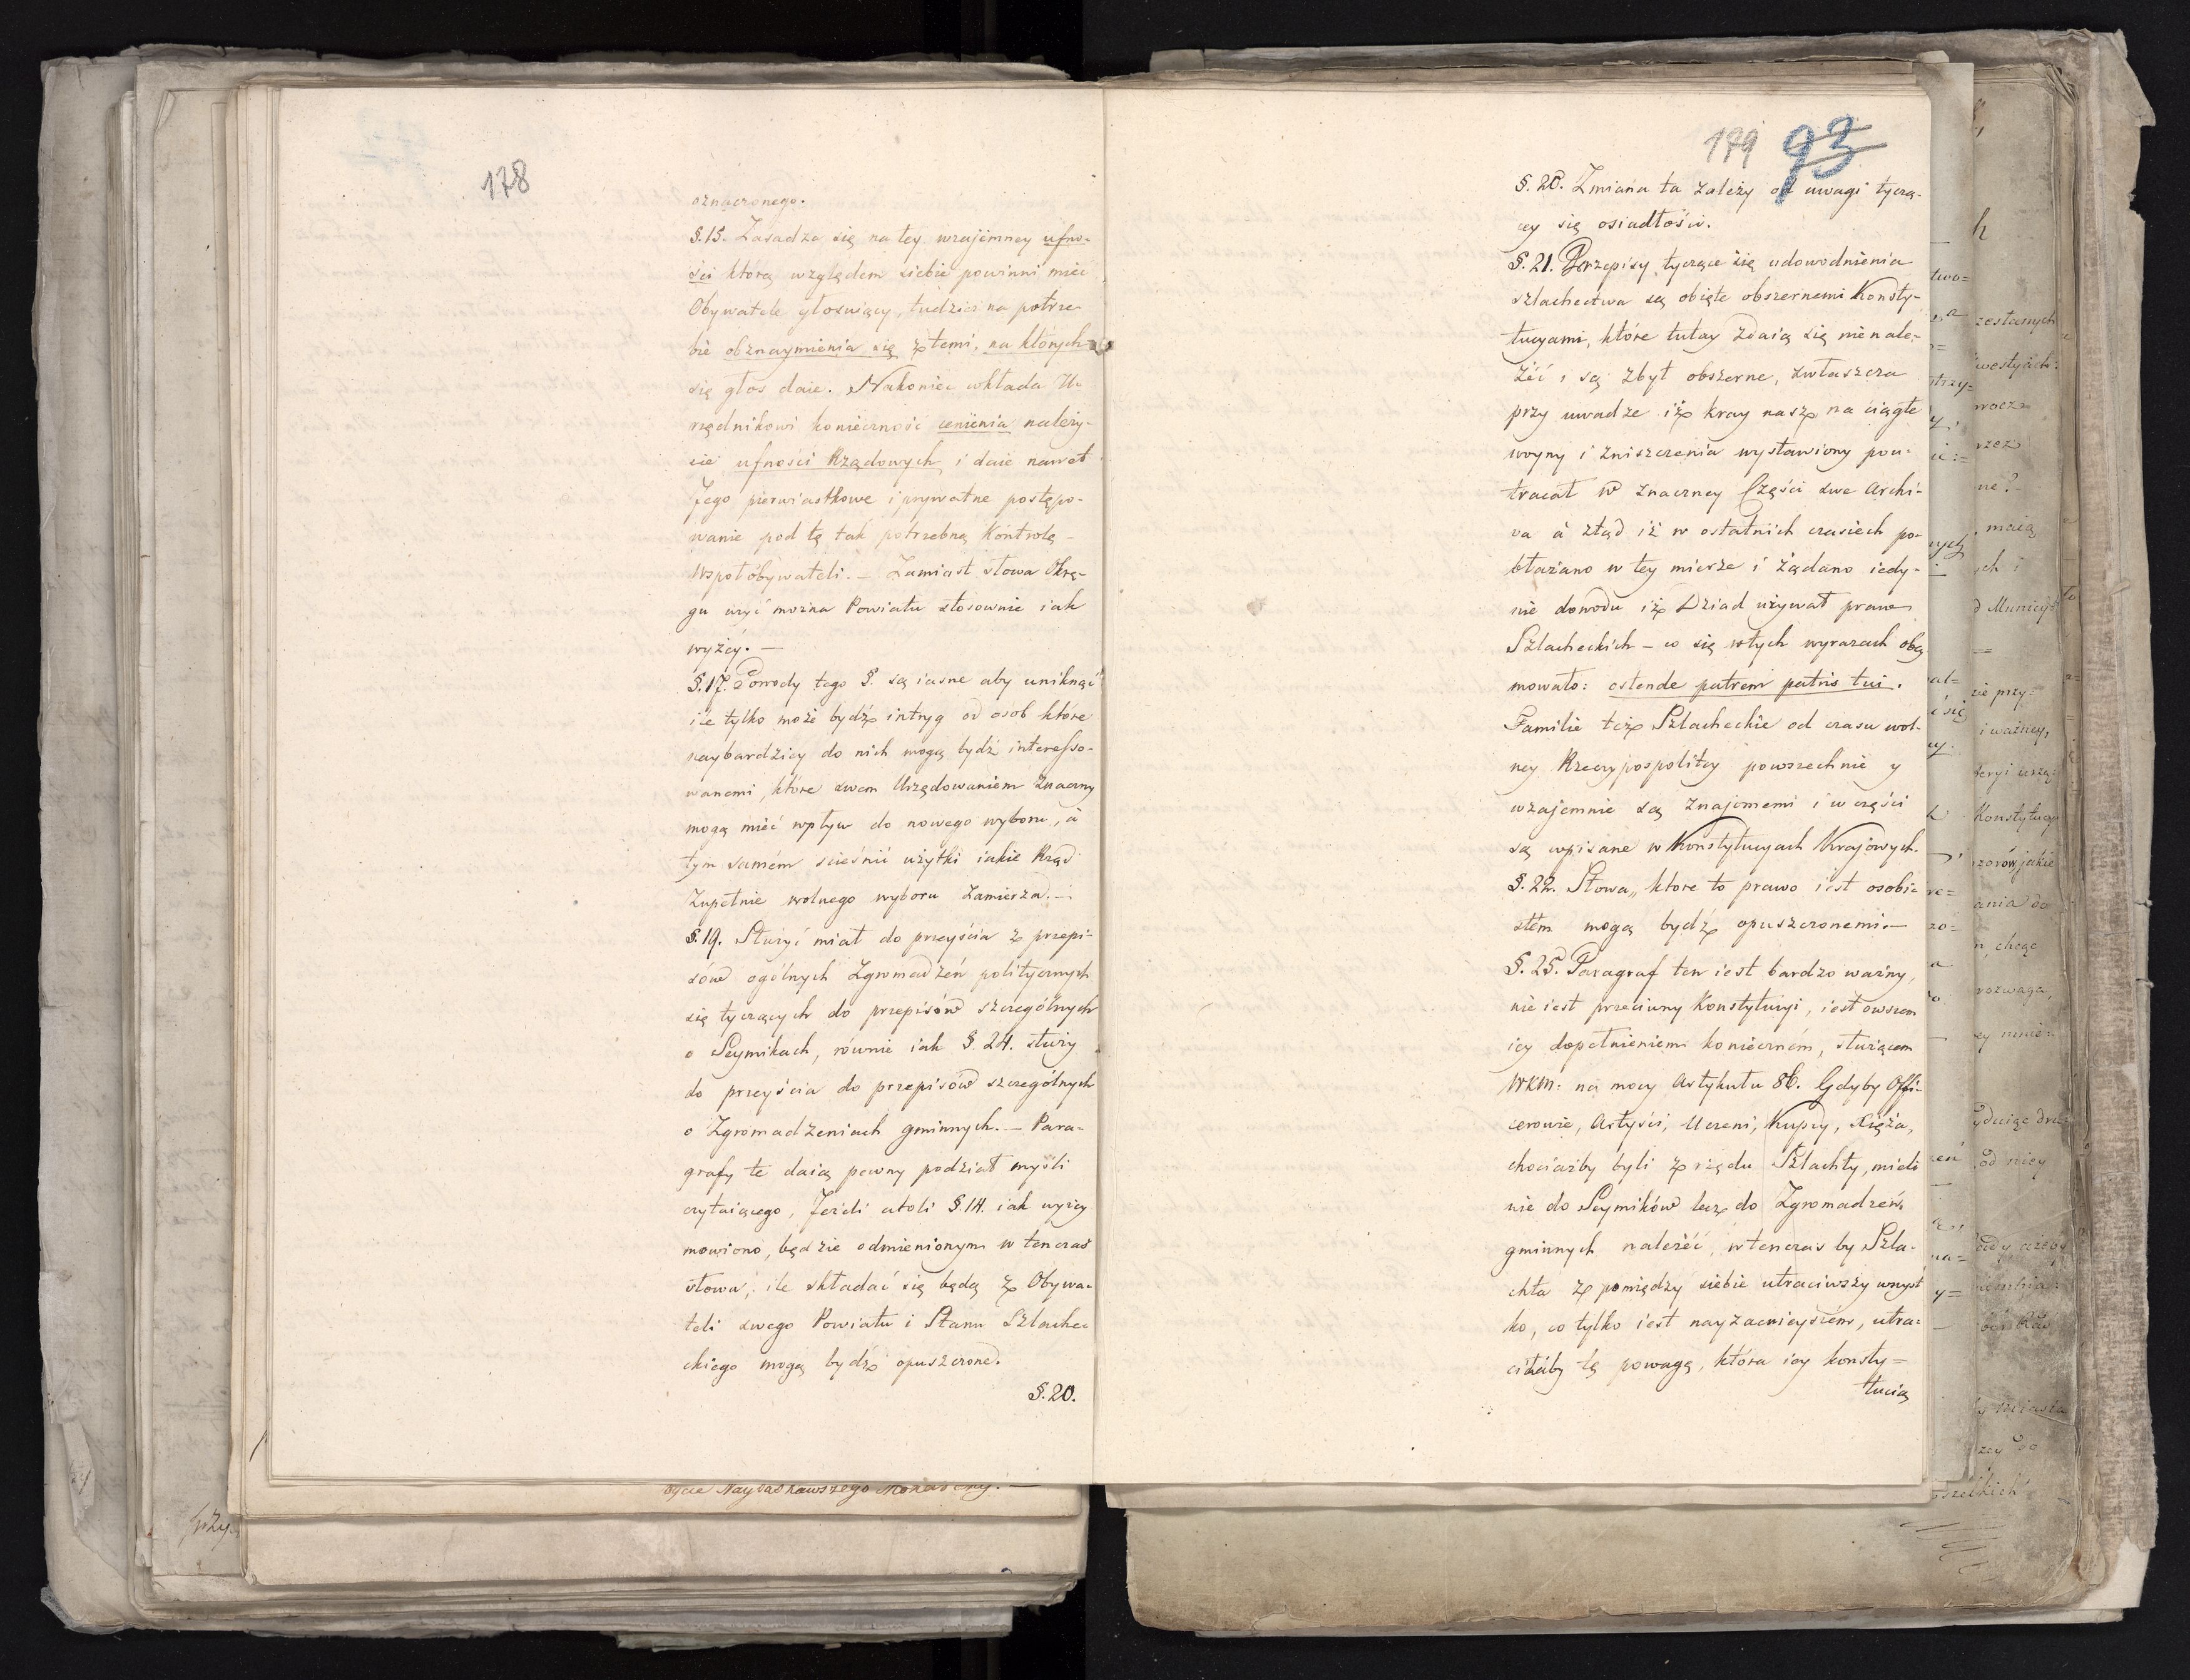 178
oznaczonego.
§. 15. Zasadza się na tey wzajemney ufno-
ści którą względem siebie powinni mieć
Obywatele głosuiący, tudzież na potrze-
bie obznaymienia się z temi, na których
się głos daie. Nakoniec wkłada U-
rzędnikowi konieczność cenienia należy-
cie ufności Rządowych i daie nawet
Jego pierwiastkowe i prywatne postępo-
wanie pod tę tak potrzebną Kontrolę
Wspołobywateli. — Zamiast słowa Okrę-
gu użyć można Powiatu stosownie iak
wyżéy. —
§. 17. Powody tego §. są iasne aby uniknąć
ile tylko może bydź intryg od osob które
naybardziey do nich mogą bydź interesso-
wanemi, które swem Urzędowaniem znaczny
mogą mieć wpływ do nowego wyboru, à
tym samém scieśnić użytki iakie Rząd
Zupełnie wolnego wyboru zamierza. —
§. 19. Służyć miał do przeyścia z przepi-
sów ogólnych Zgromadzeń politycznych
się tyczących do przepisów szczególnych
o Seymikach, równie iak §. 24. służy
do przeyścia do przepisów szczególnych
o Zgromadzeniach gminnych. — Para-
grafy te daią pewny podział myśli
czytaiącego, Jeżeli atoli §. 14. iak wyżey
mowiono, będzie odmienionym w tenczas
słowa, ile składać się będą z Obywa-
teli swego Powiatu i Stanu Szlache-
ckiego mogą bydź opuszczone.
§. 20.
oycie Nayłaskawszego Monarchy. —
179 93
§. 20. Zmiana ta zależy od uwagi tyczą-
cey się osiadłości.
§. 21. Przepisy tyczące się udowodnienia
szlachectwa są obięte obszernemi Konsty-
tucyami, które tutay zdaią się nie nale-
żéć i są zbyt obszerne, zwłaszcza
przy uwadze iż kray nasz na ciągłe
woyny i zniszczenia wystawiony pou-
tracał w znaczney Części swe Archi-
va à ztąd iż w ostatnich czasiech po-
błażano w tey mierze i żądano iedy-
nie dowodu iż Dziad używał praw
Szlacheckich — co się w tych wyrazach obéy
mowało: ostende patrem patris tui.
Familie też Szlacheckie od czasu wol-
ney Rzeczypospolitey powszechnie y
wzajemnie są znajomemi i w części
są wpisane w Konstytucyach Krajowych.
§. 22. Słowa „ ktore to prawo iest osobi-
stém mogą bydź opuszczonemi. —
§. 25. Paragraf ten iest bardzo ważny,
nie iest przeciwny Konstytucyi, iest owszem
iey dopełnieniem konieczném, służącem
WKM: na mocy Artykułu 86. Gdyby Offi-
cerowie, Artyści, Uczeni, Kupcy, Xięża,
chociażby byli z rzędu Szlachty, mieli
nie do Seymików lecz do Zgromadzeń
gminnych należéć, w tenczas by Szla-
chta z pomiędzy siebie utraciwszy wszyst
ko, co tylko iest nayzacnieyszém, utra-
ciłaby tę powagę, która iey konsty=
tucią